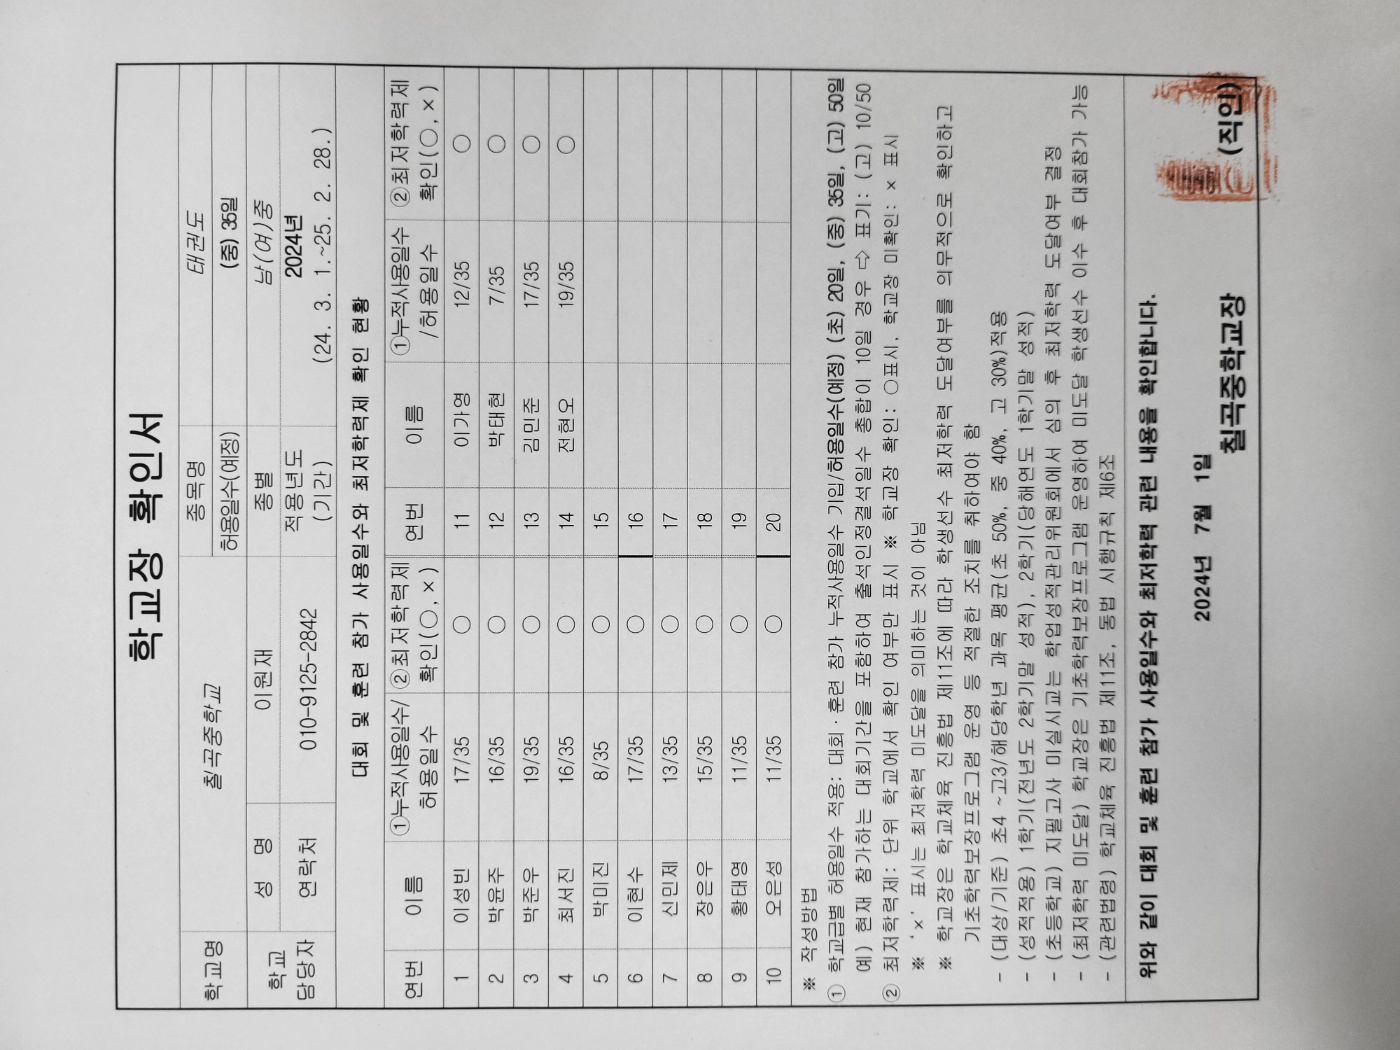 학교장 확인서
학교명 칠곡중학교 종목명 태권도
허용일수(예정) (중) 35일
학교 담당자 성 명 이원재 종별 남(여)중
연락처 010-9125-2842 적용년도 (기간) 2024년
(24. 3. 1.~25. 2. 28.)
대회 및 훈련 참가 사용일수와 최저학력제 확인 현황
연번 이름 ①누적사용일수/허용일수 ②최저학력제 확인(○, ×) 연번 이름 ①누적사용일수/허용일수 ②최저학력제 확인(○, ×)
1 이성빈 17/35 ○ 11 이가영 12/35 ○
2 박윤주 16/35 ○ 12 박태현 7/35 ○
3 박준우 19/35 ○ 13 김민준 17/35 ○
4 최서진 16/35 ○ 14 전현오 19/35 ○
5 박미진 8/35 ○ 15
6 이현수 17/35 ○ 16
7 신민제 13/35 ○ 17
8 장은우 15/35 ○ 18
9 황태영 11/35 ○ 19
10 오은성 11/35 ○ 20
※ 작성방법
① 학교급별 허용일수 적용: 대회·훈련 참가 누적사용일수 기입/허용일수(예정) (초) 20일, (중) 35일, (고) 50일
예) 현재 참가하는 대회기간을 포함하여 출석인정결석일수 총합이 10일 경우 ⇨ 표기: (고) 10/50
② 최저학력제: 단위 학교에서 확인 여부만 표시 ※ 학교장 확인: ○표시, 학교장 미확인: × 표시
※ '×' 표시는 최저학력 미도달을 의미하는 것이 아님
※ 학교장은 학교체육 진흥법 제11조에 따라 학생선수 최저학력 도달여부를 의무적으로 확인하고
기초학력보장프로그램 운영 등 적절한 조치를 취하여야 함
- (대상/기준) 초4 ~고3/해당학년 과목 평균(초 50%, 중 40%, 고 30%)적용
- (성적적용) 1학기(전년도 2학기말 성적), 2학기(당해연도 1학기말 성적)
- (초등학교) 지필고사 미실시교는 학업성적관리위원회에서 심의 후 최저학력 도달여부 결정
- (최저학력 미도달) 학교장은 기초학력보장프로그램 운영하여 미도달 학생선수 이수 후 대회참가 가능
- (관련법령) 학교체육 진흥법 제11조, 동법 시행규칙 제6조
위와 같이 대회 및 훈련 참가 사용일수와 최저학력 관련 내용을 확인합니다.
2024년 7월 1일
칠곡중학교장 (직인)